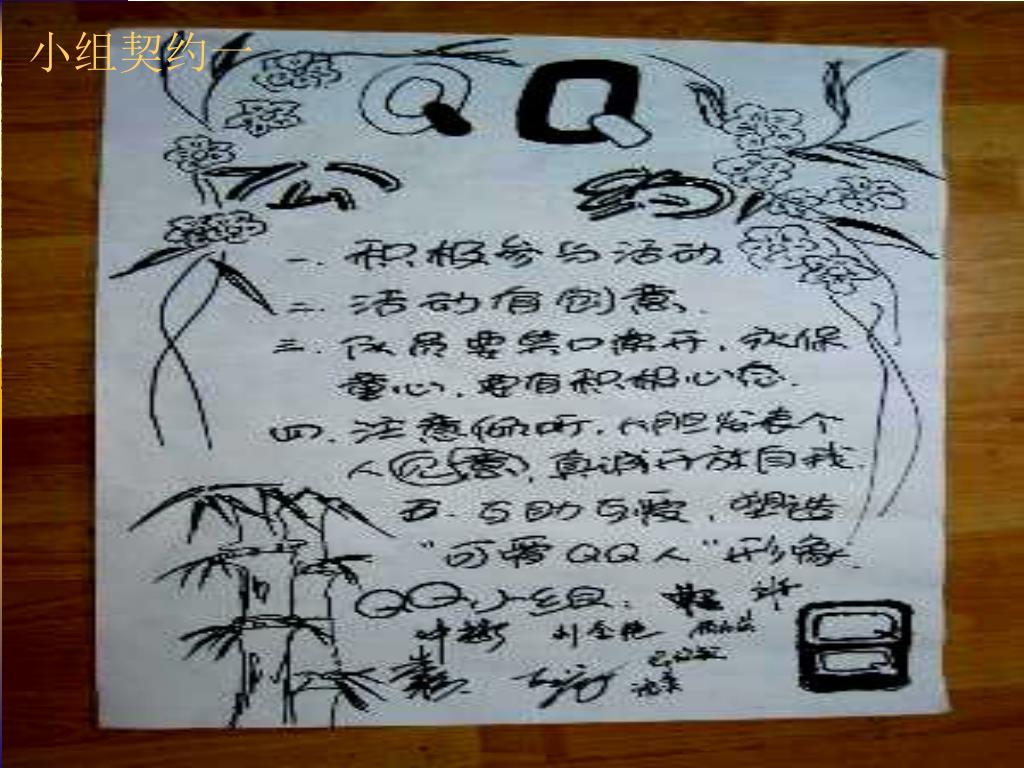 小组契约一
QQ
公约
一. 积极参与活动
二. 活动有创意.
三. 成员要笑口常开, 永保
童心, 要有积极心态.
四. 注意倾听, 大胆发表个
人见意, 真诚开放自我.
五. 互助互爱, 塑造
“可爱QQ人”形象.
QQ小组: